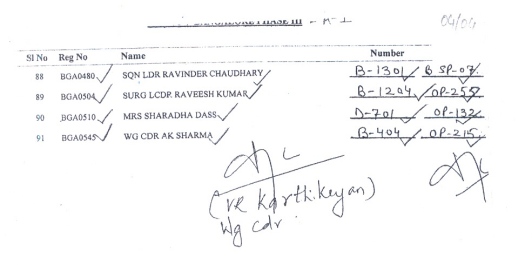 PHASE III - M-1
04/04
Sl No Reg No Name Number
88 BGA0480 SQN LDR RAVINDER CHAUDHARY B-1301 B SP-07
89 BGA0504 SURG LCDR RAVEESH KUMAR B-1204 OP-255
90 BGA0510 MRS SHARADHA DASS D-701 OP-132
91 BGA0545 WG CDR AK SHARMA B-404 OP-215
(VK Karthikeyan)
Wg Cdr